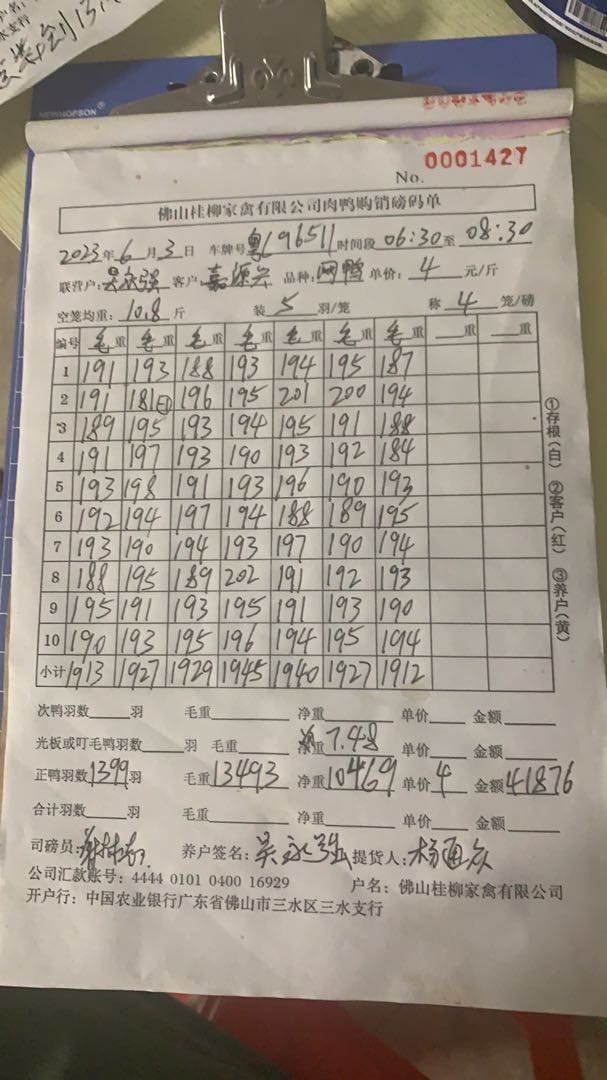 NEWHOPSON
No. 0001427
佛山桂柳家禽有限公司肉鸭购销磅码单
2023年6月3日 车牌号粤L96511时间段06:30至08:30
联营户: 吴永强 客户: 嘉源兴 品种: 网鸭 单价: 4 元/斤
空笼均重: 10.8斤 装5羽/笼 称4笼/磅
编号 毛重 毛重 毛重 毛重 毛重 毛重 毛重 重 重
1 191 193 188 193 194 195 187
2 191 181 196 195 201 200 194
3 189 195 193 194 195 191 188
4 191 197 193 190 193 192 184
5 193 198 191 193 196 190 193
6 192 194 197 194 188 189 195
7 193 190 194 193 197 190 194
8 188 195 189 202 191 192 193
9 195 191 193 195 191 193 190
10 190 193 195 196 194 195 194
小计 1913 1927 1929 1945 1940 1927 1912
①存根(白) ②客户(红) ③养户(黄)
次鸭羽数 羽 毛重 净重 单价 金额
光板或叮毛鸭羽数 羽 毛重 净重 7.48 单价 金额
正鸭羽数1399羽 毛重13493 净重10469 单价4 金额41876
合计羽数 羽 毛重 净重 单价 金额
司磅员: 养户签名: 吴永强 提货人: 杨通众
公司汇款账号: 4444 0101 0400 16929 户名: 佛山桂柳家禽有限公司
开户行: 中国农业银行广东省佛山市三水区三水支行